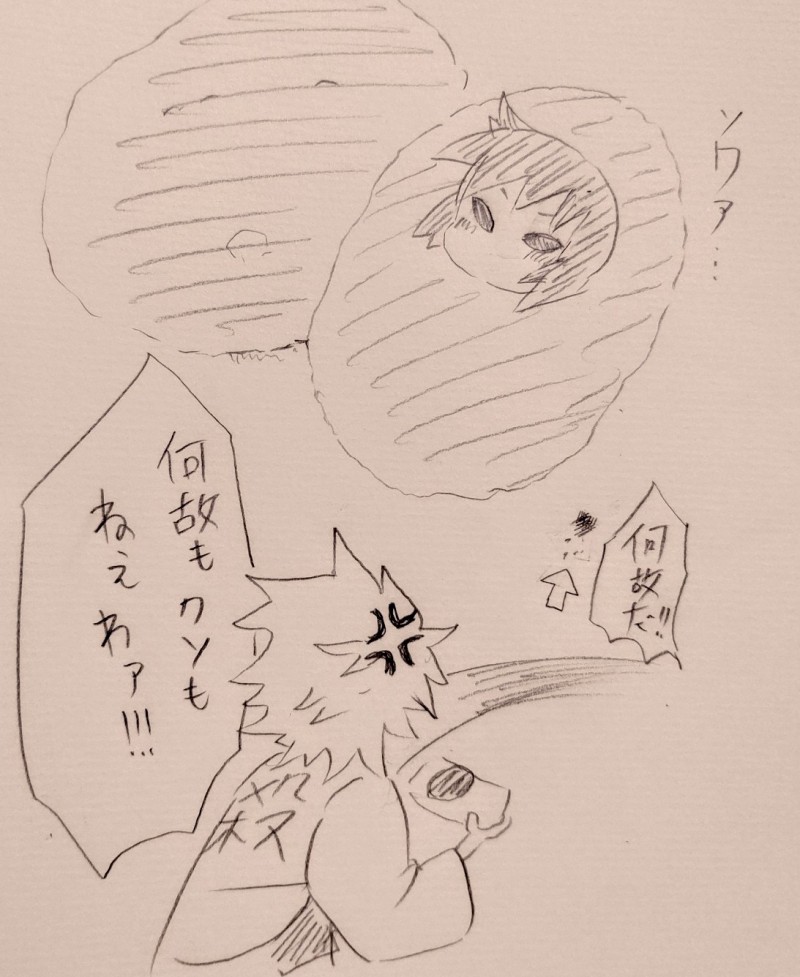 ソワァ…
何故だ!!
何故もクソも
ねえわァ!!!